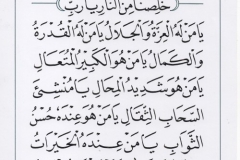 خَلِّصْنَا مِنَ النَّارِ يَا رَبِّ
يَا مَنْ لَهُ الْعِزَّةُ وَالْجَلَالُ يَا مَنْ لَهُ الْقُدْرَةُ
وَالْكَمَالُ يَا مَنْ هُوَ الْكَبِيرُ الْمُتَعَالِ
يَا مَنْ هُوَ شَدِيدُ الْمِحَالِ يَا مُنْشِئَ
السَّحَابِ الثِّقَالِ يَا مَنْ هُوَ عِنْدَهُ حُسْنُ
الثَّوَابِ يَا مَنْ عِنْدَهُ الْخَيْرَاتُ